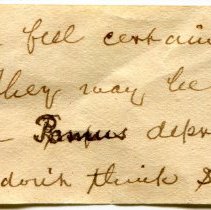 feel certain
they may be
depr
don't think S